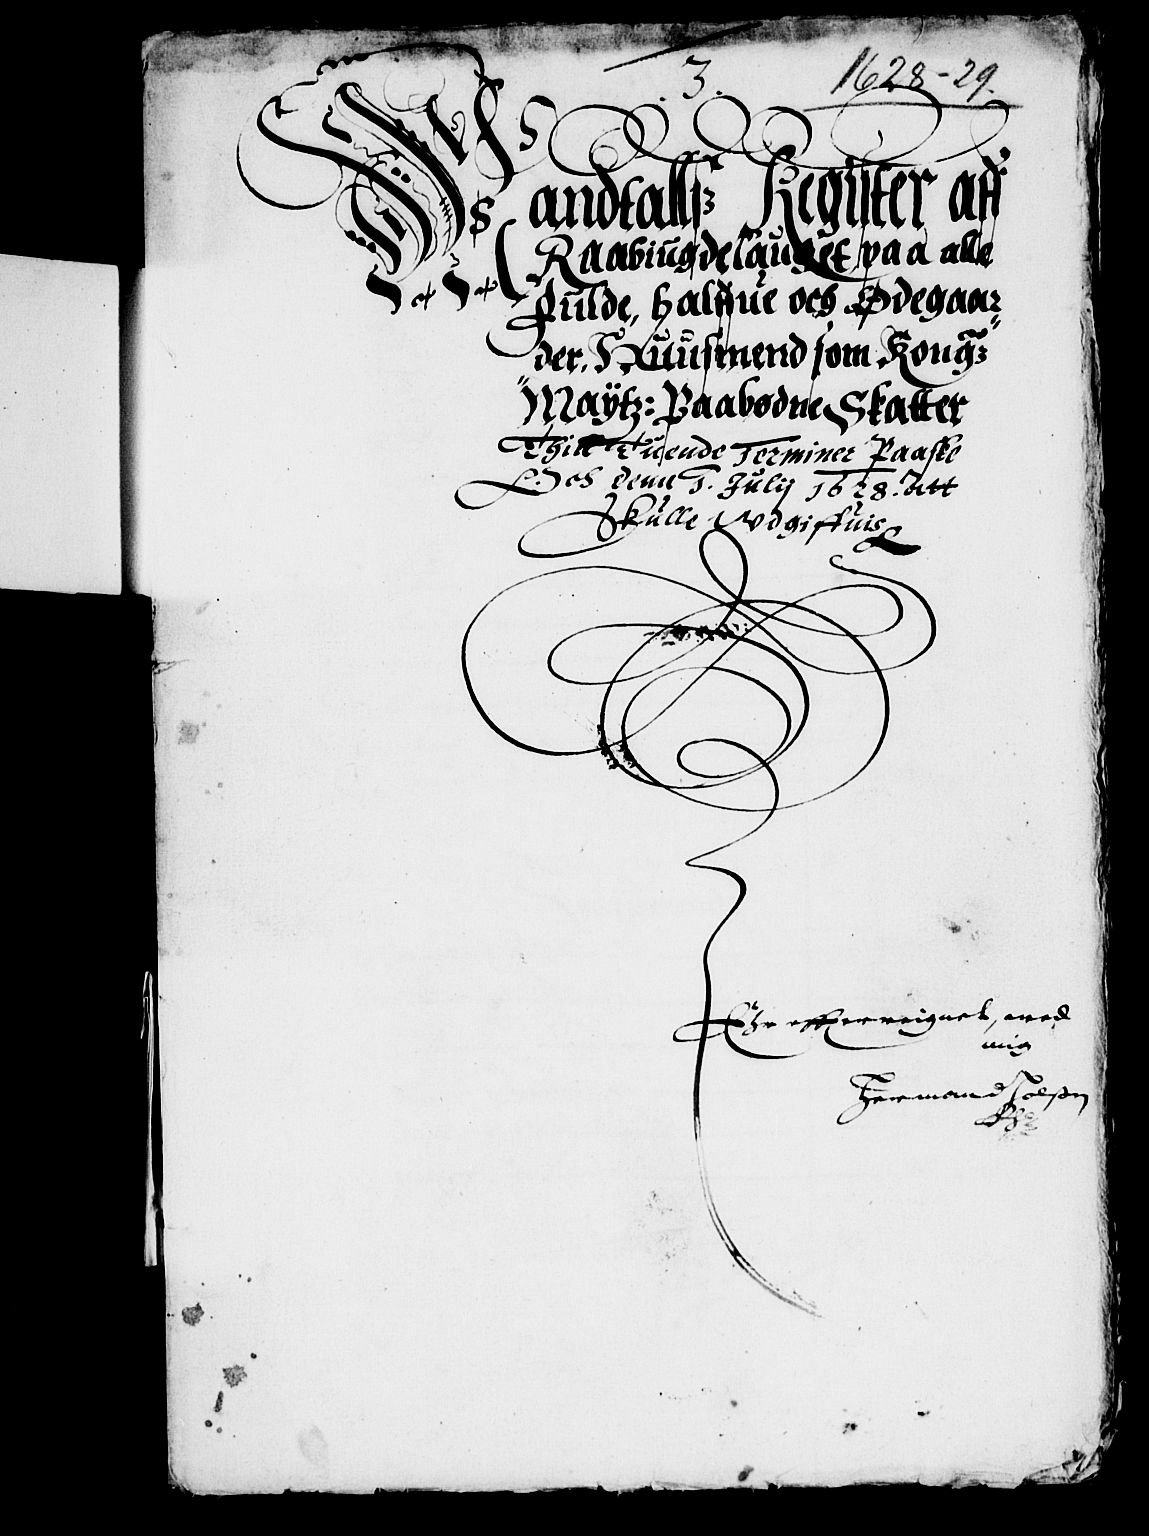 .3.
1628-29.
Mandtalls Register aff
Raabiugdelauget paa alle
Fulde, Halffue och Ødegaar-
der, Huusmend som Kong:
Maytz: Paabødne Skatter
Thill Tuende Terminer Paaske
Och denn 1. Julij 1628. Att
Skulle Udgiffuis
med
mig
Hermand